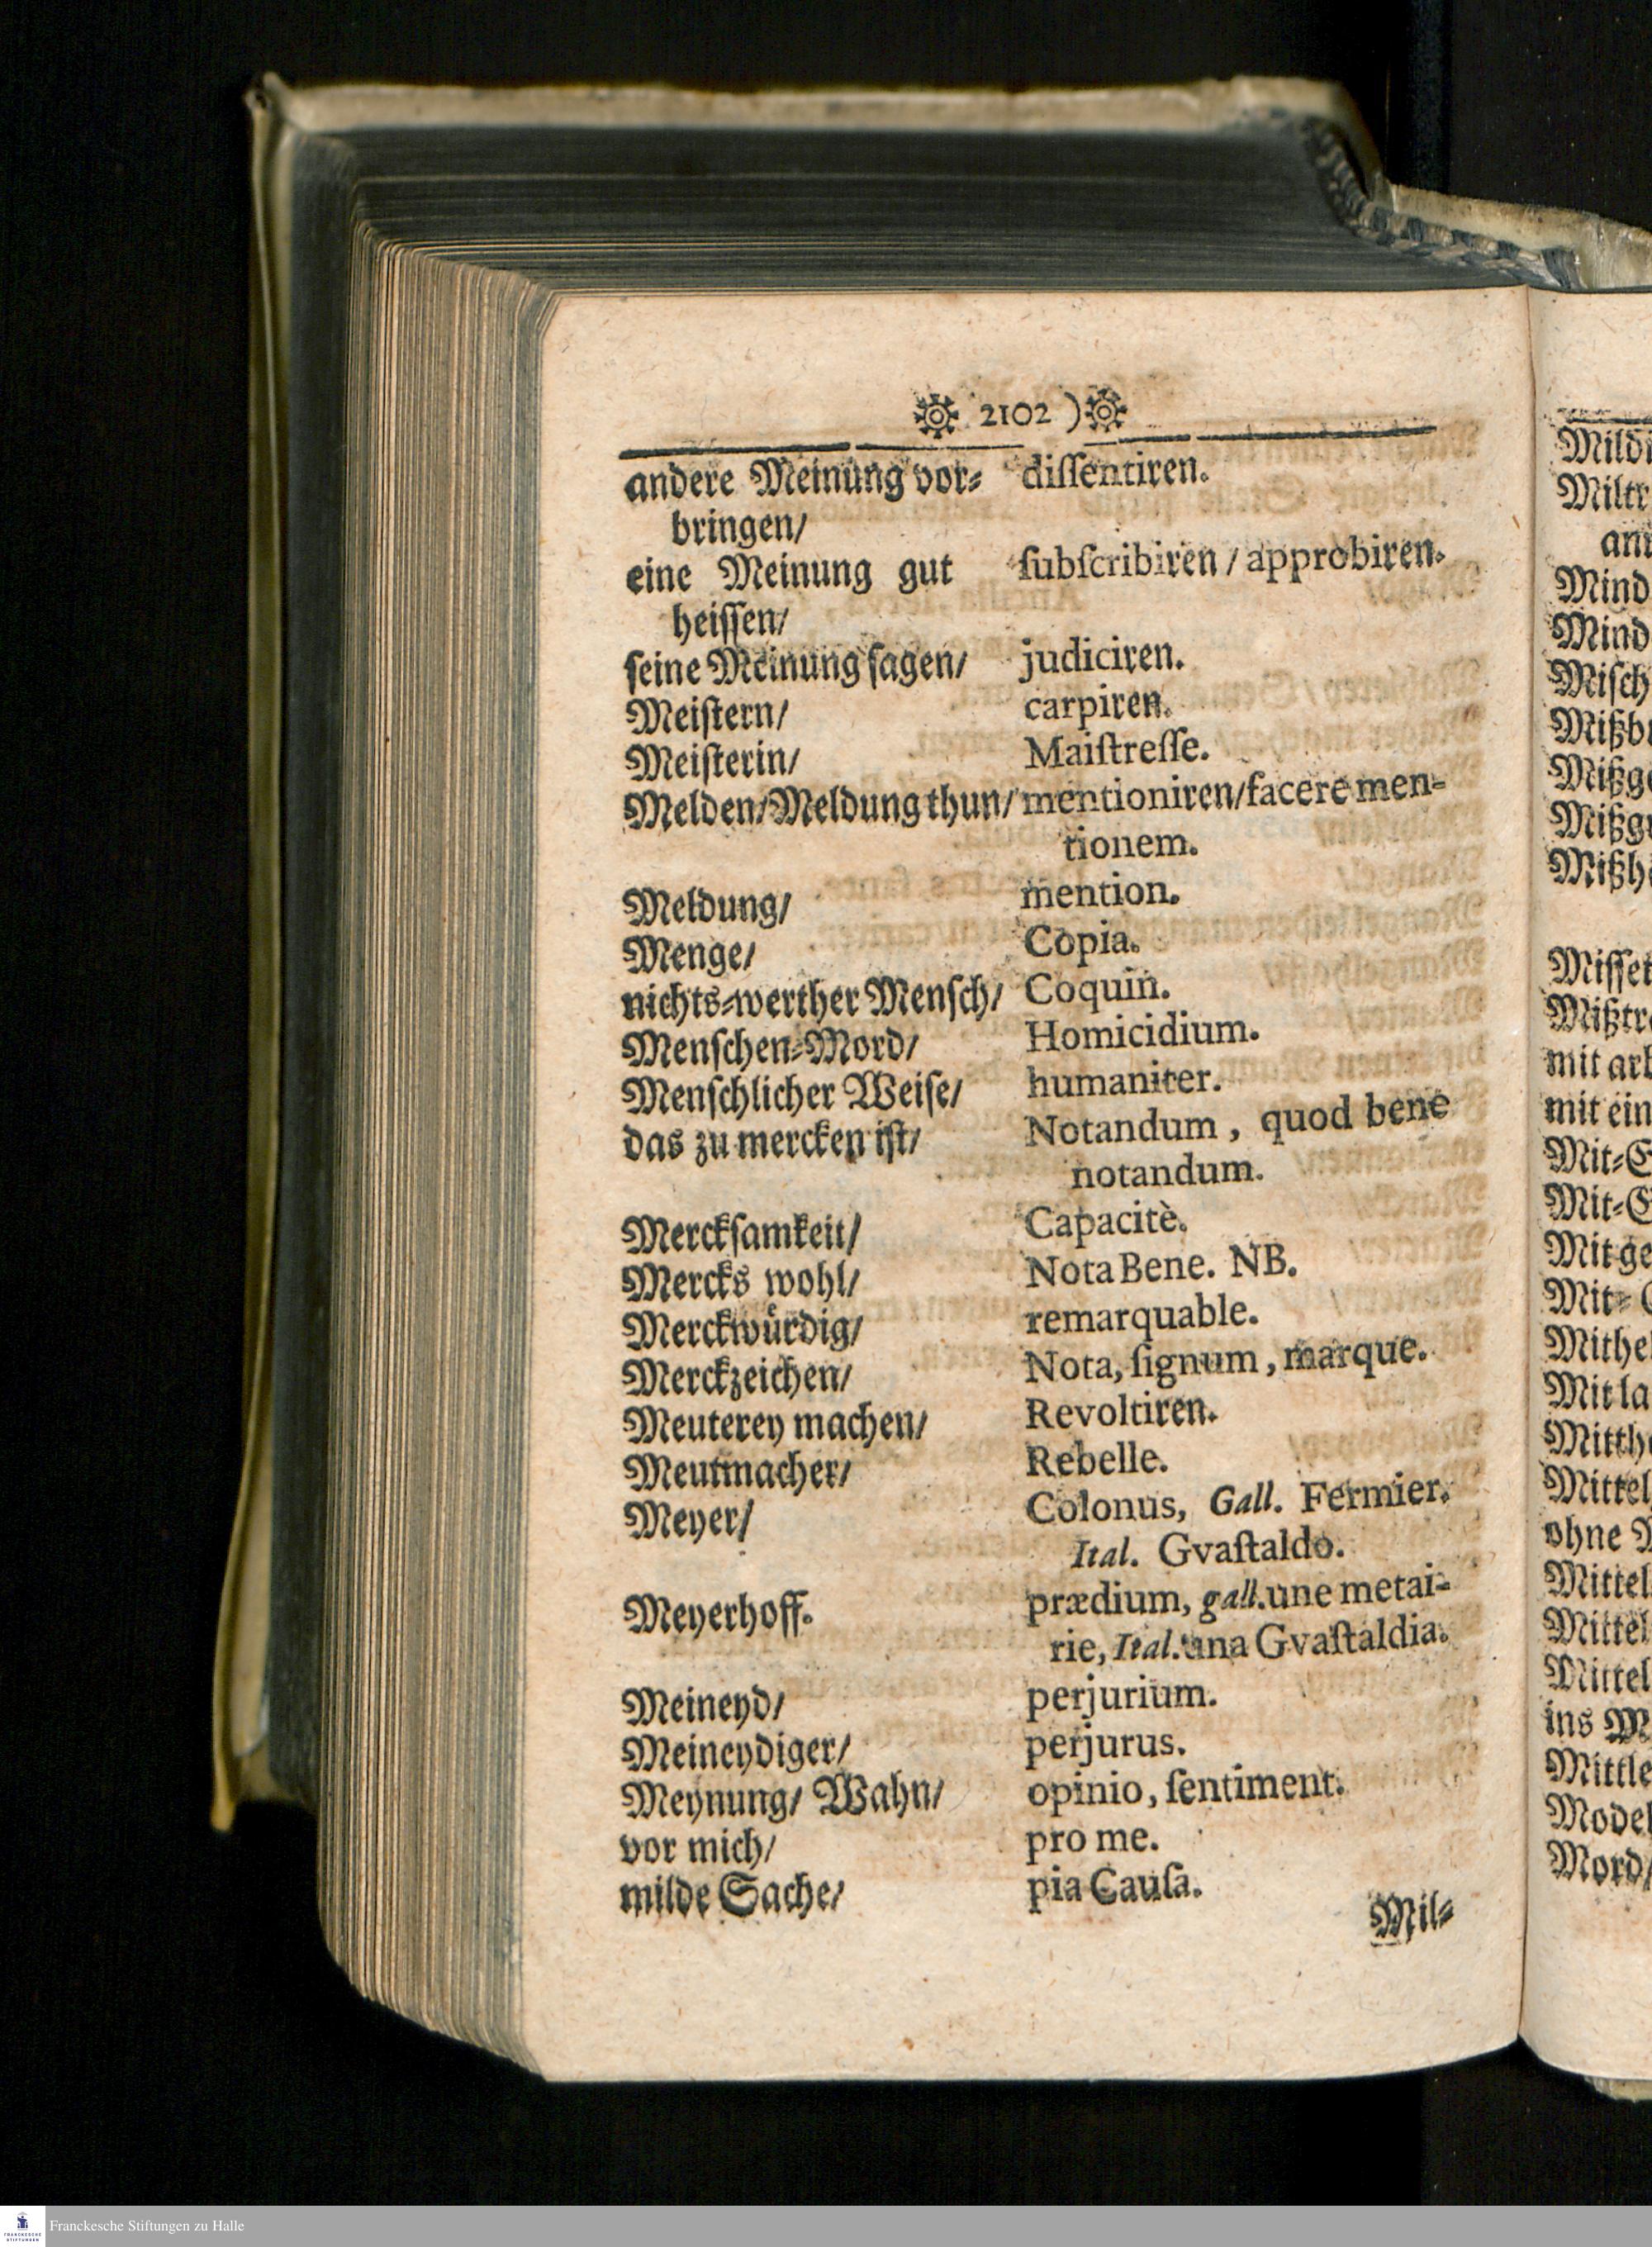 2102 )
andere Meinung vor⸗ diſſentiren.
bringen/
eine Meinung gut ſubſcribiren / approbiren.
heiſſen/
ſeine Meinung ſagen/ judiciren.
Meiſtern/ carpiren.
Meiſterin/ Maiſtreſſe.
Melden/Meldung thun/ mentioniren/facere men-
tionem.
Meldung/ mention.
Menge/ Copia.
nichts⸗werther Menſch/ Coquin.
Menſchen⸗Mord/ Homicidium.
Menſchlicher Weiſe/ humaniter.
das zu mercken iſt/ Notandum, quod bene
notandum.
Merckſamkeit/ Capacitè.
Mercks wohl/ Nota Bene. NB.
Merckwuͤrdig/ remarquable.
Merckzeichen/ Nota, ſignum, marque.
Meuterey machen/ Revoltiren.
Meutmacher/ Rebelle.
Meyer/ Colonus, Gall. Fermier.
Ital. Gvaſtaldo.
Meyerhoff. prædium, gall. une metai-
rie, Ital. una Gvaſtaldia.
Meineyd/ perjurium.
Meineydiger/ perjurus.
Meynung/ Wahn/ opinio, ſentiment.
vor mich/ pro me.
milde Sache/ pia Cauſa.
Mil⸗
Mit ge
Mit la
mit ein
ohne
ins
Mord/
Franckesche Stiftungen zu Halle
FRANCKESCHE
STIFTUNGEN